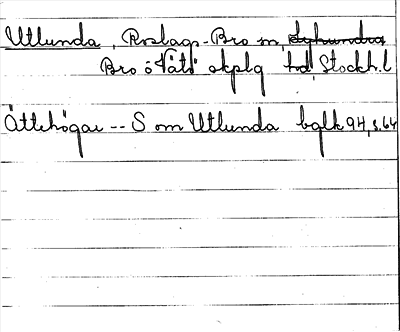 Utlunda, Roslags-Bro sn, Lyhundra
Bro o Vätö skplg hd, Stockh.l
Ättehögar -- S om Utlunda bglk 94, s.64